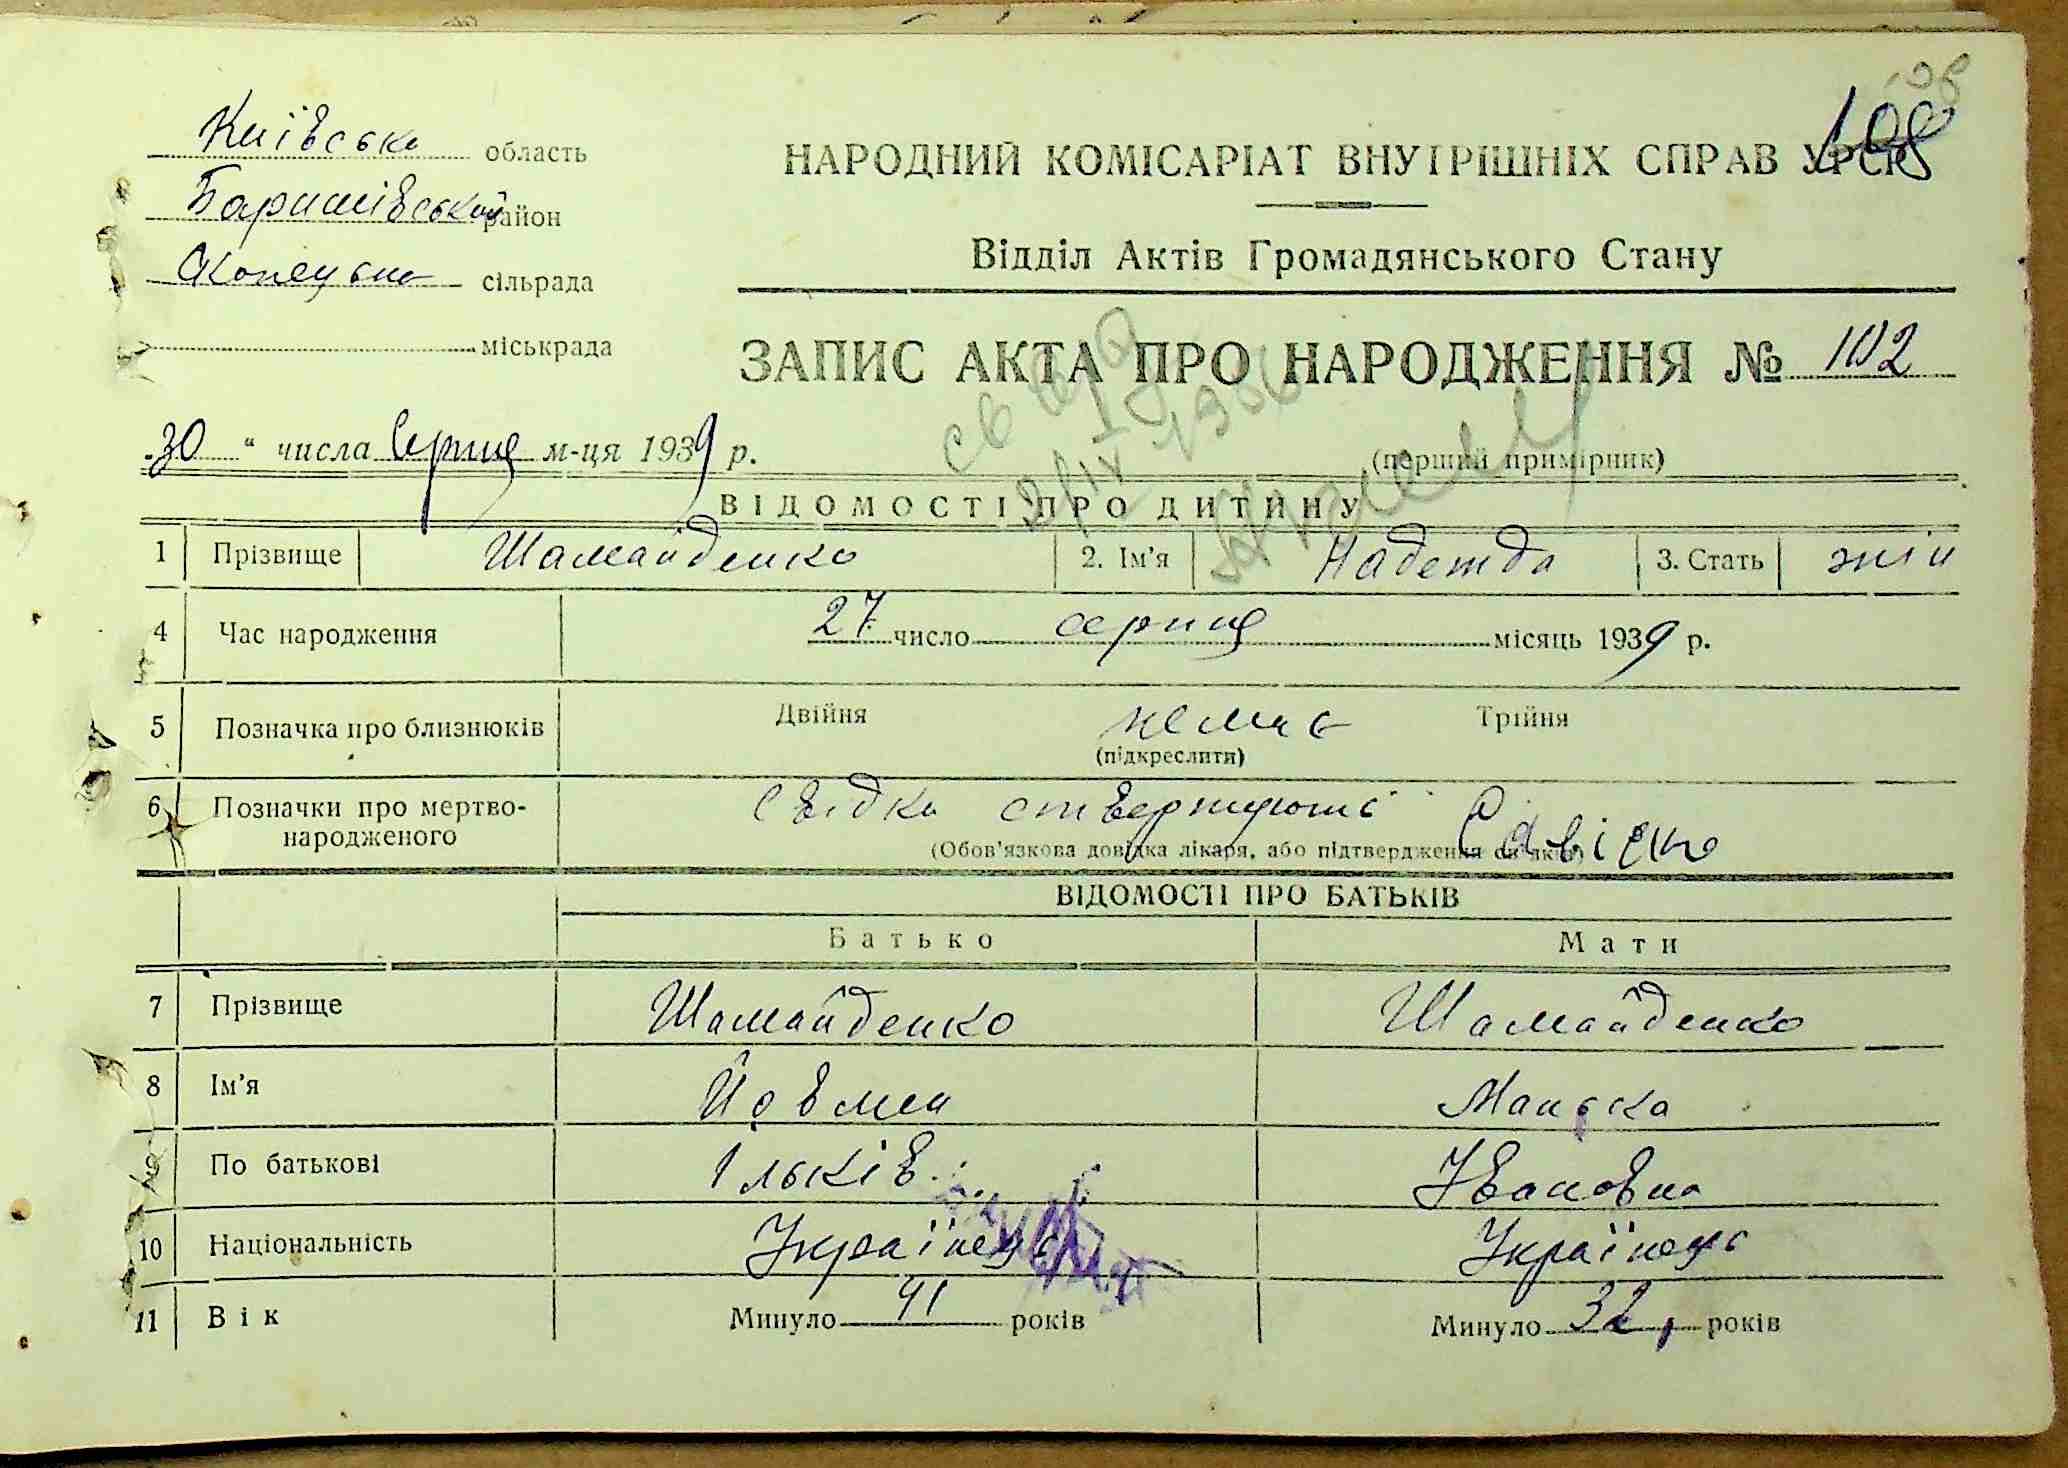 108
Київська область
НАРОДНИЙ КОМІСАРІАТ ВНУТРІШНІХ СПРАВ УРСР
Баришівський район
Відділ Актів Громадянського Стану
сільрада
міськрада
ЗАПИС АКТА ПРО НАРОДЖЕННЯ № 102
„30" числа Серпня м-ця 1939 р.
(перший примірник)
ВІДОМОСТІ ПРО ДИТИНУ
1 Прізвище Шамайденко 2. Ім'я Надежда 3. Стать жін
4 Час народження 27 число серпня місяць 1939 р.
5 Позначка про близнюків Двійня немає Трійня
(підкреслити)
6 Позначки про мертво-народженого свідки
(Обов'язкова довідка лікаря, або підтвердження
ВІДОМОСТІ ПРО БАТЬКІВ
Батько Мати
7 Прізвище Шамайденко Шамайденко
8 Ім'я
9 По батькові Ільків Івановна
10 Національність Українець Українець
11 Вік Минуло 41 років Минуло 32 років